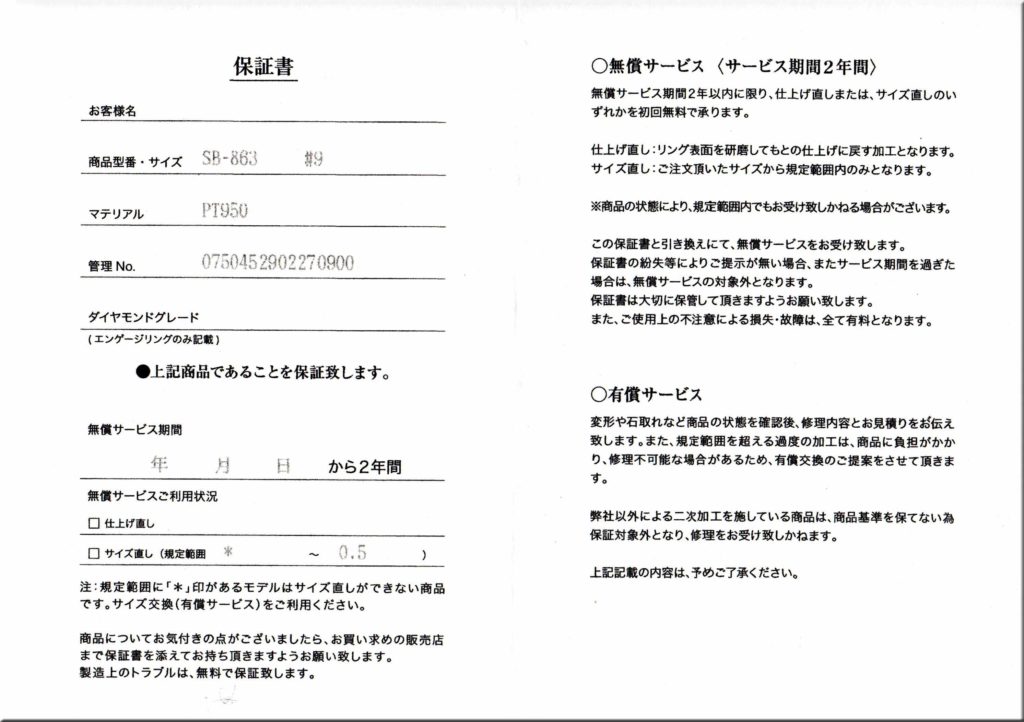 保証書
お客様名
商品型番・サイズ SB-863 #9
マテリアル PT950
管理No. 0750452902270900
ダイヤモンドグレード
(エンゲージリングのみ記載)
●上記商品であることを保証致します。
無償サービス期間
年 月 日 から2年間
無償サービスご利用状況
□ 仕上げ直し
□ サイズ直し(規定範囲 * ~ 0.5 )
注:規定範囲に「*」印があるモデルはサイズ直しができない商品
です。サイズ交換(有償サービス)をご利用ください。
商品についてお気付きの点がございましたら、お買い求めの販売店
まで保証書を添えてお持ち頂きますようお願い致します。
製造上のトラブルは、無料で保証致します。
○無償サービス〈サービス期間2年間〉
無償サービス期間2年以内に限り、仕上げ直しまたは、サイズ直しのい
ずれかを初回無料で承ります。
仕上げ直し:リング表面を研磨してもとの仕上げに戻す加工となります。
サイズ直し:ご注文頂いたサイズから規定範囲内のみとなります。
※商品の状態により、規定範囲内でもお受け致しかねる場合がございます。
この保証書と引き換えにて、無償サービスをお受け致します。
保証書の紛失等によりご提示が無い場合、またサービス期間を過ぎた
場合は、無償サービスの対象外となります。
保証書は大切に保管して頂きますようお願い致します。
また、ご使用上の不注意による損失・故障は、全て有料となります。
○有償サービス
変形や石取れなど商品の状態を確認後、修理内容とお見積りをお伝え
致します。また、規定範囲を超える過度の加工は、商品に負担がかか
り、修理不可能な場合があるため、有償交換のご提案をさせて頂きま
す。
弊社以外による二次加工を施している商品は、商品基準を保てない為
保証対象外となり、修理をお受け致しかねます。
上記記載の内容は、予めご了承ください。